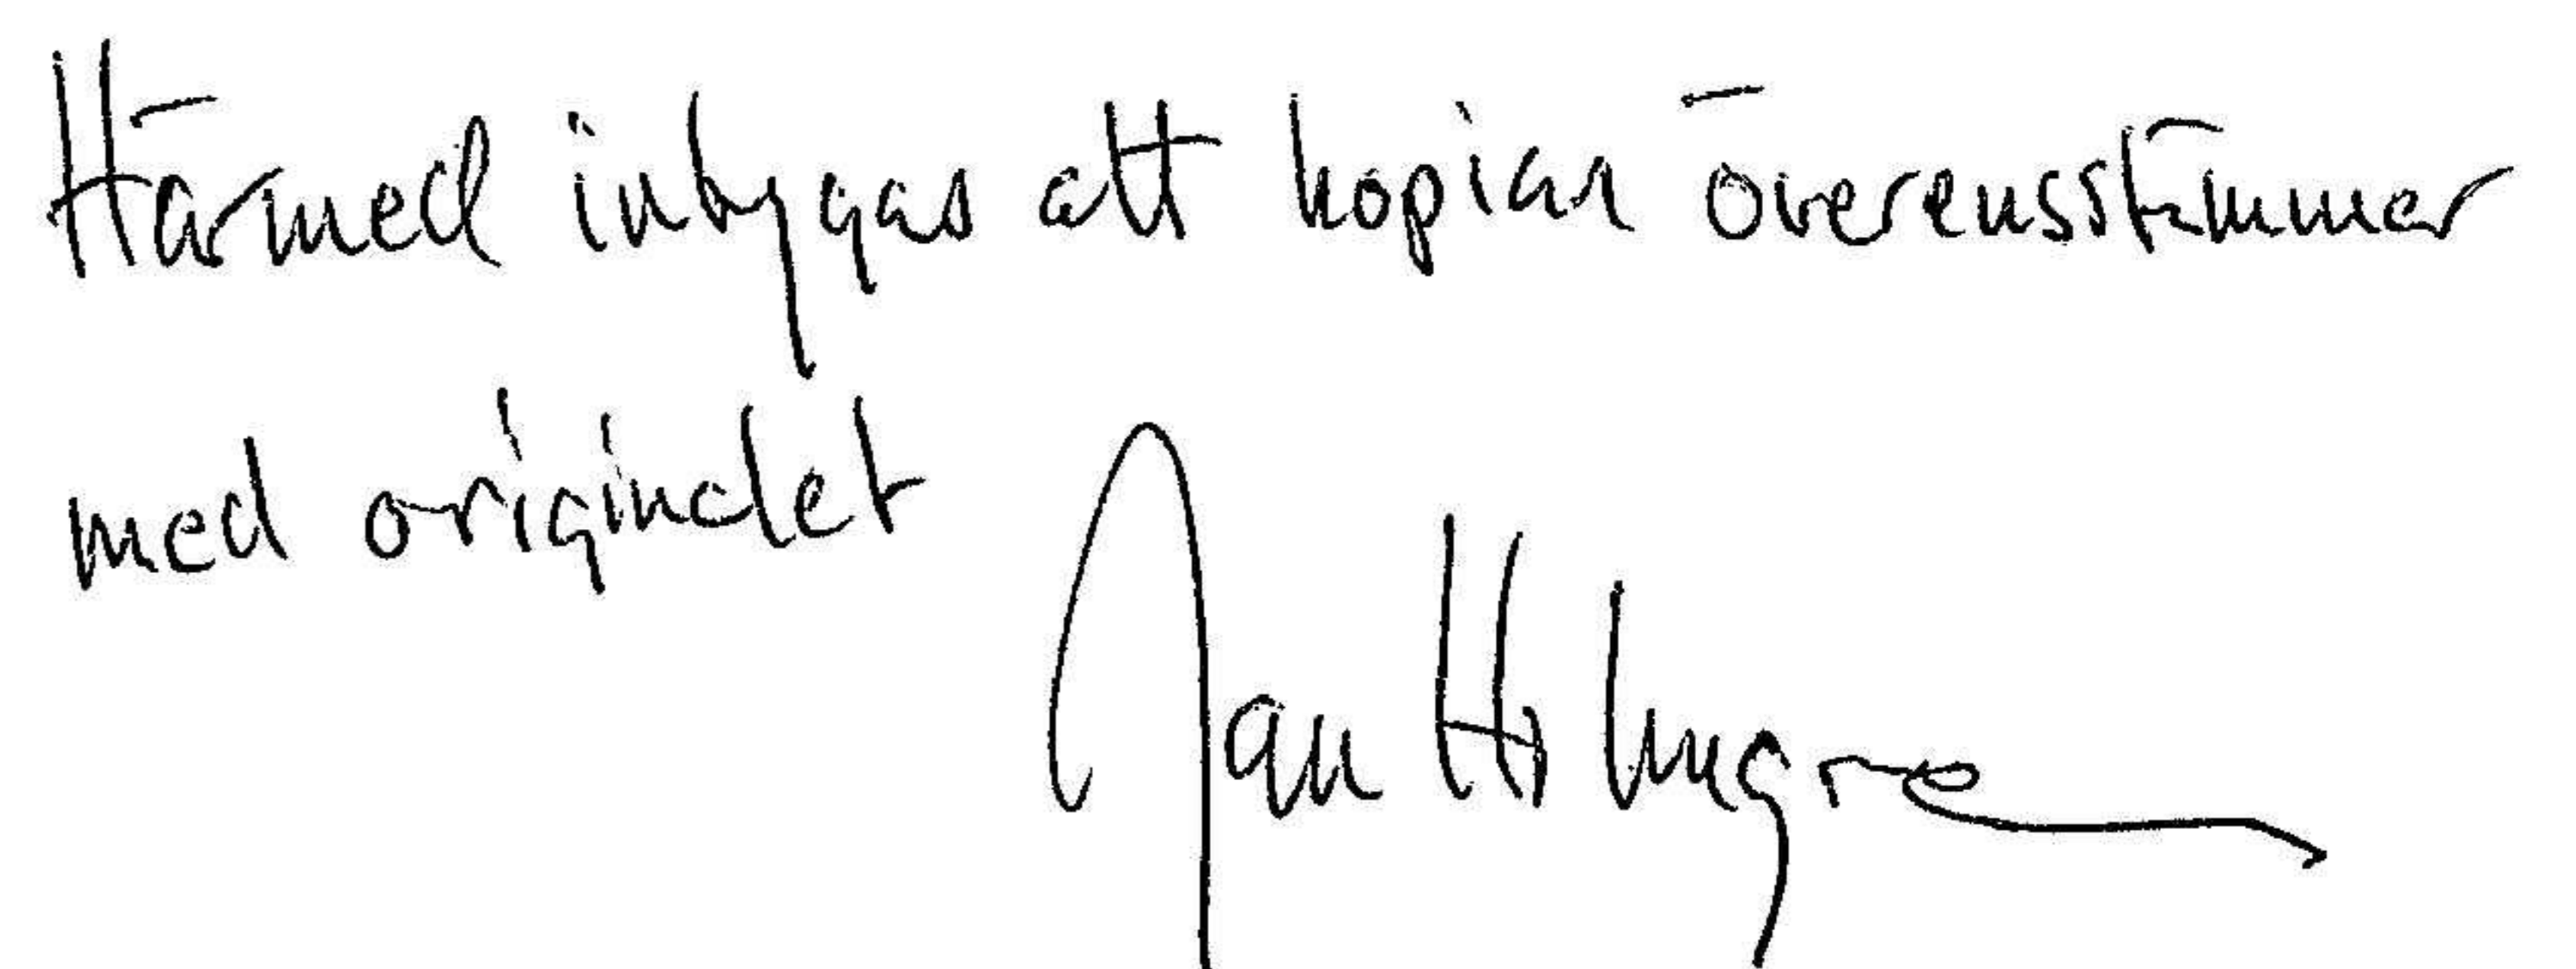 Härmed intygas att kopian överensstämmer
med originalet
Jan Holmgren